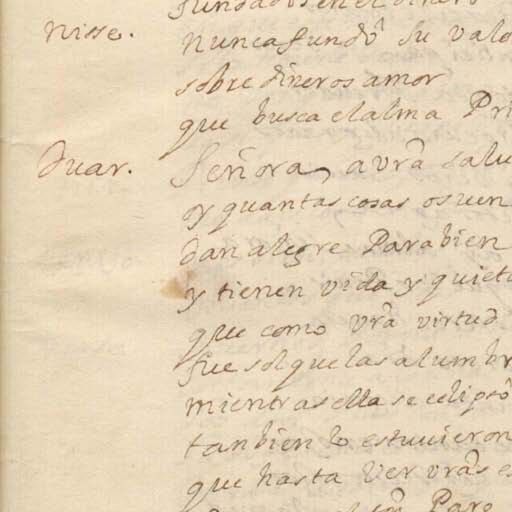 fundados en el dinero
Nisse. Nunca fundô su valo
sobre dineros amor
que busca el alma Pri
Duar. Señora, a vrâ salu
oy quantas cosas os uen
dan alegre Parabien
y tienen vida y quieto
que como vrâ virtud
fue sol que las alumbr
mientras ella se eclipsô
tanbien lo estuuieron
que hasta ver vrâs e